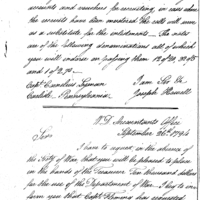 accounts and vouchers for recruiting in cases where
the accounts have been rendered the cash will serve
as a substitute for the entitlements. The notes
are of the following denominations all of which
you will endorse on passing them 12 of 20, 20 of 5
and 1 of 2.
I am Sir &c
Capt Cornelius Lyman
Carlisle Pennsylvania
Joseph Howell
W.D. Accountants Office
September 26th 1794
Sir
I have to request in the absence of
the Secty of War, that you will be pleased to place
in the hands of the Treasurer Ten thousand dollars
for the use of the Department of War. I beg to in-
form you that Capt has requested